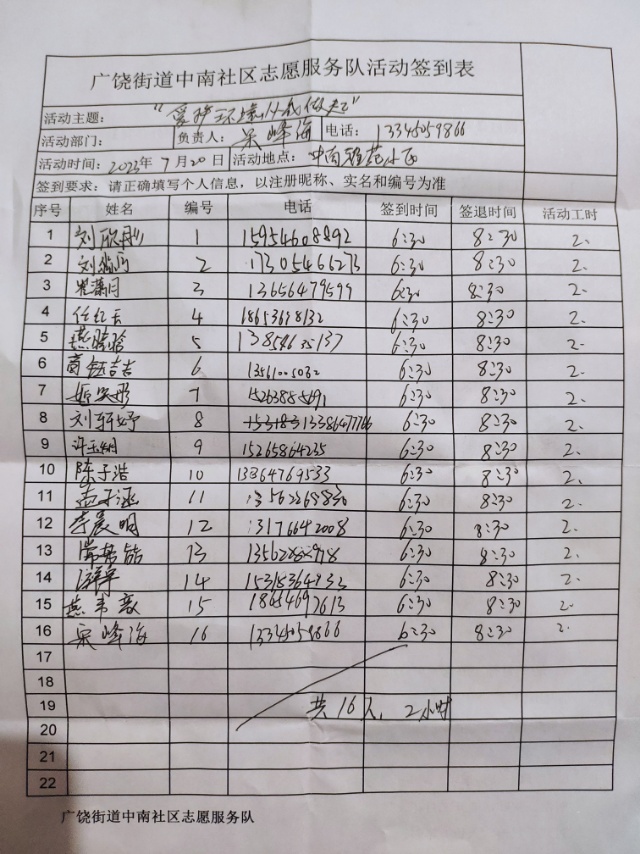 广饶街道中南社区志愿服务队活动签到表
活动主题： “爱护环境从我做起”
活动部门： 负责人： 峰海 电话： 13345059866
活动时间： 2023年7月20日 活动地点： 中南 花小区
签到要求：请正确填写个人信息，以注册昵称、实名和编号为准
序号 姓名 编号 电话 签到时间 签退时间 活动工时
1 刘欣彤 1 15954608892 6:30 8:30 2.
2 刘 2 17305466273 6:30 8:30 2.
3 3 13656479599 6:30 8:30 2.
4 任红云 4 18653678132 6:30 8:30 2.
5 燕 5 6:30 8:30 2.
6 6 13561005032 6:30 8:30 2.
7 7 6:30 8:30 2.
8 刘轩妤 8 6:30 8:30 2.
9 许玉娟 9 15265864235 6:30 8:30 2.
10 陈子浩 10 13864769533 6:30 8:30 2.
11 孟子涵 11 6:30 8:30 2.
12 李晨明 12 13176642008 6:30 8:30 2.
13 常 13 6:30 8:30 2.
14 14 15315364832 6:30 8:30 2.
15 燕 15 18654692613 6:30 8:30 2.
16 峰海 16 13345059866 6:30 8:30 2.
17
18
19 共16人，2小时
20
21
22
广饶街道中南社区志愿服务队